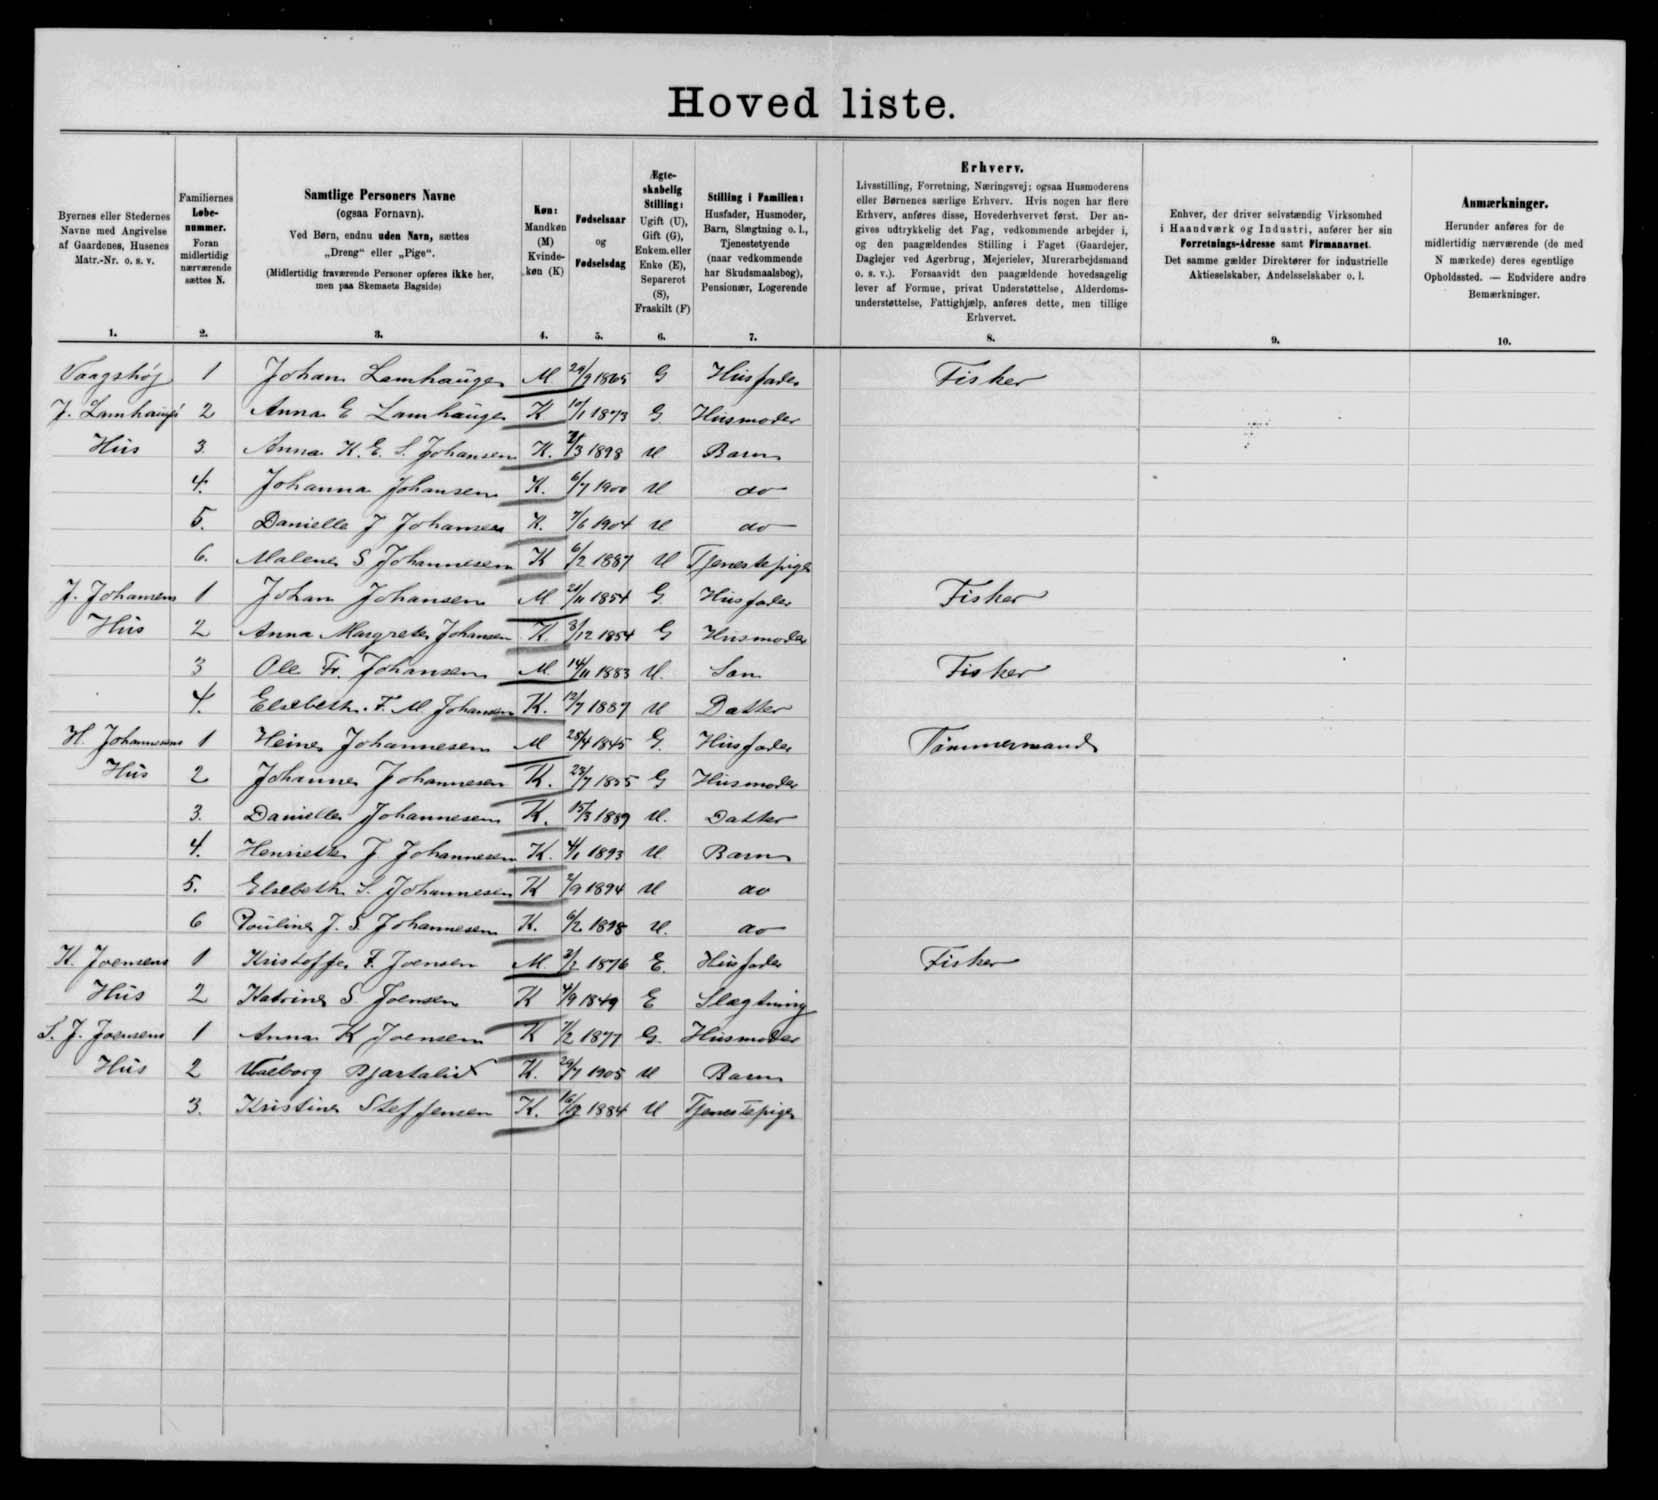 Hoved liste.
Byernes eller Stedernes Navne med Angivelse af Gaardenes, Husenes Matr.-Nr. o. s. v.
Familiernes Løbenummer. Foran midlertidig nærværende sættes N.
Samtlige Personers Navne (ogsaa Fornavn). Ved Børn, endnu uden Navn, sættes „Dreng“ eller „Pige“. (Midlertidig fraværende Personer opføres ikke her, men paa Skemaets Bagside)
Køn: Mandkøn (M) Kvindekøn (K)
Fødselsaar og Fødselsdag
Ægteskabelig Stilling: Ugift (U), Gift (G), Enkem. eller Enke (E), Separeret (S), Fraskilt (F)
Stilling i Familien: Husfader, Husmoder, Barn, Slægtning o. l., Tjenestetyende (naar vedkommende har Skudsmaalsbog), Pensionær, Logerende
Erhverv.
Livsstilling, Forretning, Næringsvej; ogsaa Husmoderens
eller Børnenes særlige Erhverv. Hvis nogen har flere
Erhverv, anføres disse, Hovederhvervet først. Der an-
gives udtrykkelig det Fag, vedkommende arbejder i,
og den paagældendes Stilling i Faget (Gaardejer,
Daglejer ved Agerbrug, Mejerielev, Murerarbejdsmand
o. s. v.). Forsaavidt den paagældende hovedsagelig
lever af Formue, privat Understøttelse, Alderdoms-
understøttelse, Fattighjælp, anføres dette, men tillige
Erhvervet.
Enhver, der driver selvstændig Virksomhed
i Haandværk og Industri, anfører her sin
Forretnings-Adresse samt Firmanavnet.
Det samme gælder Direktører for industrielle
Aktieselskaber, Andelsselskaber o. l.
Anmærkninger.
Herunder anføres for de
midlertidig nærværende (de med
N mærkede) deres egentlige
Opholdssted. — Endvidere andre
Bemærkninger.
1. 2. 3. 4. 5. 6. 7. 8. 9. 10.
Vaagshøj 1 Johan Lamhauge M 29/9 1865 G Husfader Fisker
J. Lamhauges 2 Anna E Lamhauge K 10/1 1873 G. Husmoder
Hus 3. Anna K. E. S. Johansen K. /3 1898 U Barn
4. Johanna Johansen K. 6/7 1900 U do
5. Danielle J Johansen K. 7/6 1904 U do
6. Malene S Johannesen K 6/2 1887 U Tjenestepige
J. Johansens 1 Johan Johansen M 21/11 1854 G. Husfader Fisker
Hus 2 Anna Margrete Johansen K. 3/12 1854 G Husmoder
3 Ole Fr. Johansen M. 14/11 1883 U. Søn Fisker
4. Elsebeth F. M. Johansen K. 12/7 1887 U Datter
H. Johannesens 1 Heine Johannesen M 25/4 1845 G. Husfader Tømmermand
Hus 2 Johanne Johannesen K. 23/7 1855 G Husmoder
3. Danielle Johannesen K. 15/3 1889 U. Datter
4. Henriette J Johannesen K. 4/1 1893 U Barn
5. Elsebeth S. Johannesen K 2/9 1894 U do
6 Pouline J. S Johannesen K. 6/2 1898 U. do
K. Joensens 1 Kristoffer F. Joensen M. 3/2 1876 E. Husfader Fisker
Hus 2 Katrine S Joensen K 4/9 1849 E Slægtning
S. J. Joensens 1 Anna K Joensen K 7/2 1877 G. Husmoder
Hus 2 Valborg Bjartalid K. 29/7 1905 U Barn
3. Kristine Steffensen K. 16/9 1884 U Tjenestepige